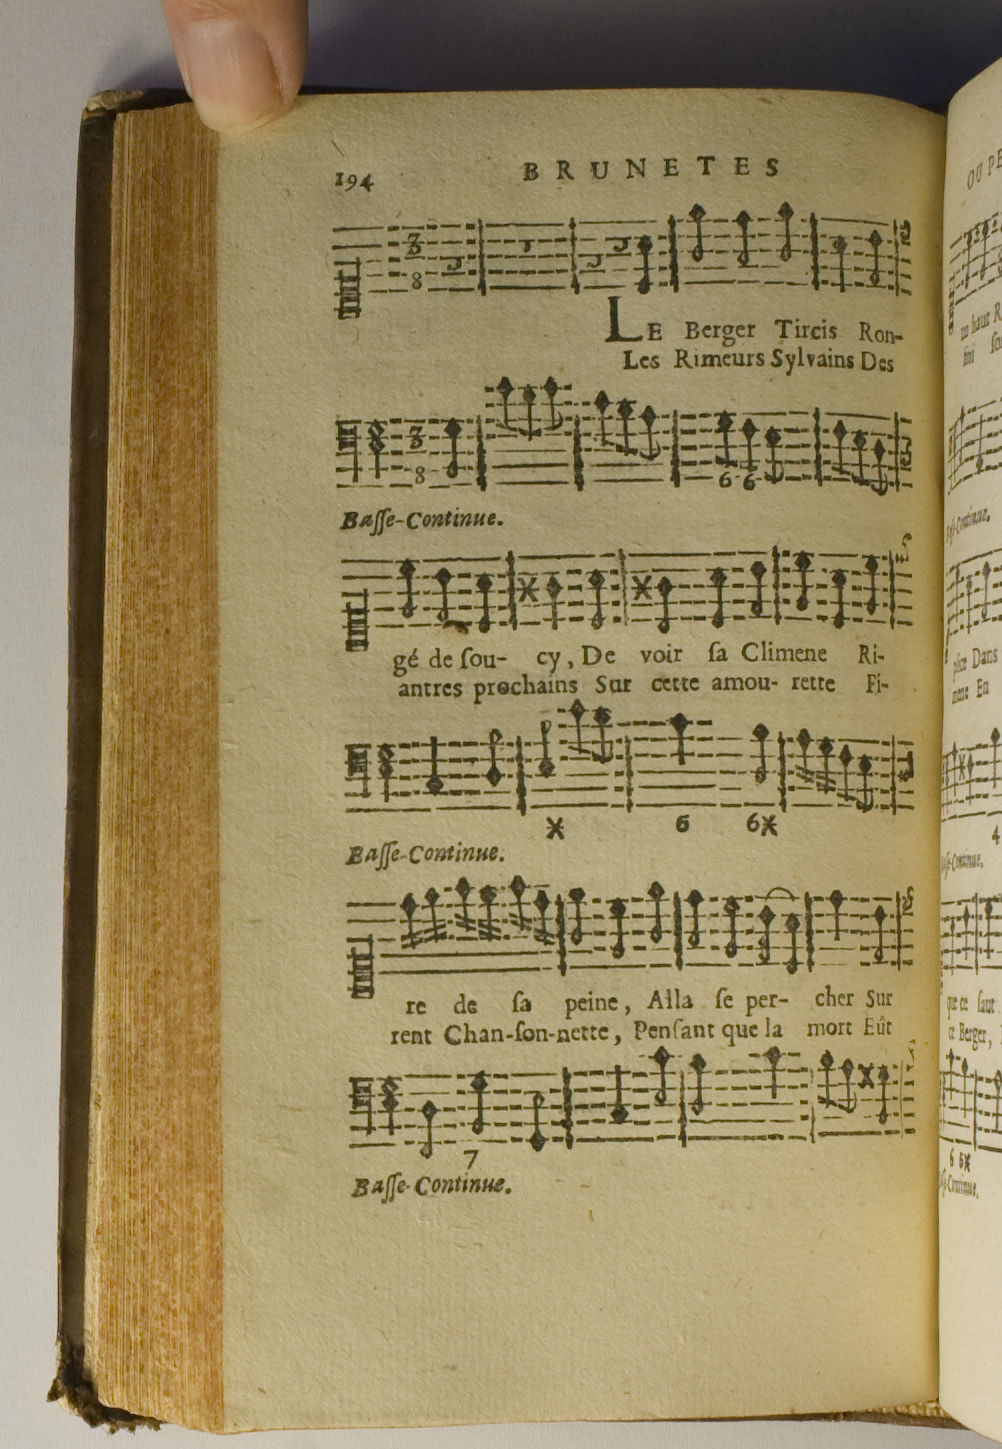 194 BRUNETES
3
8
LE Berger Tircis Ron-
Les Rimeurs Sylvains Des
3
8
6 6
Baſſe-Continue.
gé de ſou- cy, De voir ſa Climene Ri-
antres prochains Sur cette amou- rette Fi-
6 6
Baſſe-Continue.
re de ſa peine, Alla ſe per- cher Sur
rent Chan-ſon-nette, Penſant que la mort Eût
7
Baſſe-Continue.
OU PE
4
6 6